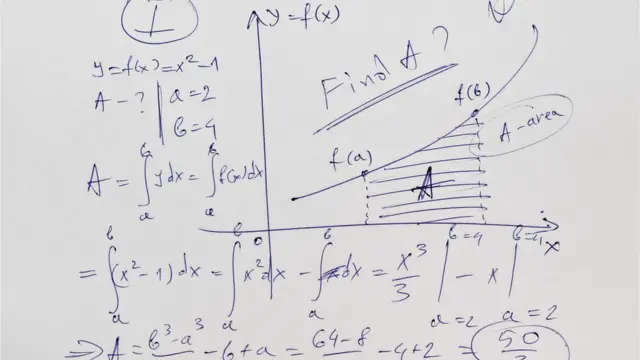 1
y = f(x)
y = f(x) = x² - 1
A - ? | a = 2
b = 4
Find A?
f(b)
A - area
f(a)
A
A = ∫ₐᵇ y dx = ∫ₐᵇ f(x) dx
0
x
= ∫ₐᵇ (x² - 1) dx = ∫ₐᵇ x² dx - ∫ₐᵇ dx = x³/3 |ₐ₌₂ᵇ⁼⁴ - x |ₐ₌₂ᵇ⁼⁴
⇒ A = b³ - a³ - b + a = 64 - 8 - 4 + 2 = 50